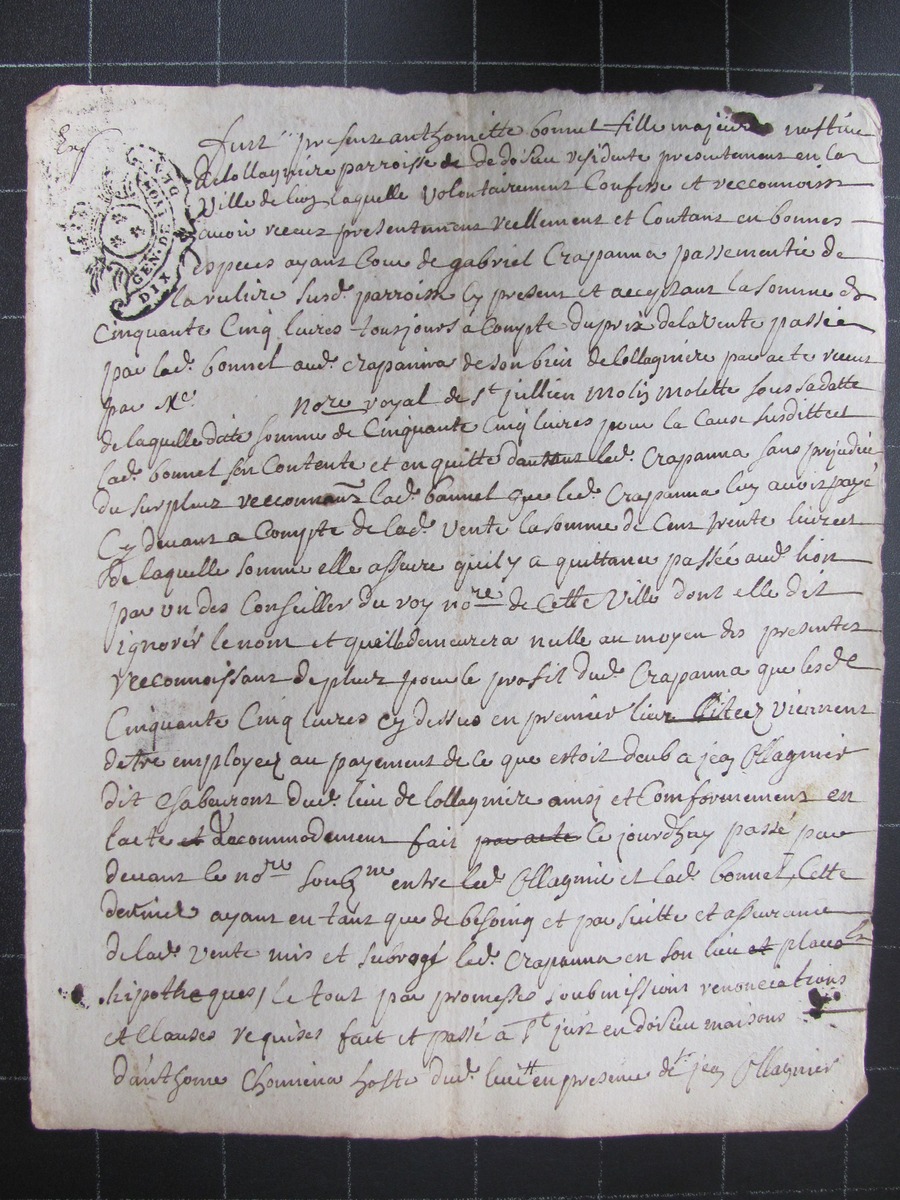 Exp
GEN. DE LION
DIX
Fust presente anthoinette bonnet fille majeure nattive
de lollagnière parroisse de doisieu residente presentement en la
Ville de lion laquelle volontairement Confesse et reconnoist
avoir receu presentement reellement et Contant en bonnes
especes ayant Cour de gabriel Crapanna passementie de
la rulière susd. parroisse cy present et acceptant la somme de
Cinquante Cinq livres tousjours a Compte du prix de la vente passée
par lad. bonnet aud. crapanna de son bien de lollagnière par acte receu
par Me. Nore royal de St jullien Molin Molette sous sa datte
de laquelle dite somme de Cinquante Cinq livres pour la Cause susditte et
lad. bonnet sen Contente et en quitte led. Crapanna sans prejudice
du surplus reconnant lad. bonnet que led. Crapanna luy avoir payé
Cy devant a Compte de lad. vente la somme de Cent trente livres et
de laquelle somme elle asseure quil y a quittance passée aud. lion
par un des Conseiller du roy nore de Cette Ville dont elle dit
ignorér le nom et quelle demeurera nulle au moyen des presentes
reconnoissant de plus pour le profit dud. Crapanna que lesd.
Cinquante Cinq livres cy dessus en premier lieu viennent
detre employez au payement de ce que estoit deub a jean Ollagnier
dit dud. lieu de lollagnière ainsi et Conformement en
lacte et daccommodement fait par acte ce jourdhuy passé par
devant le nore soubne entre led. Ollagnie et lad. bonnet, Cette
derniere ayant en tant que de besoing et par suitte et asseurance
de lad. vente mis et subrogé led. Crapanna en son lieu et place
hipotheques, le tout par promesses soubmissions renonciations
et Clauses requises fait et passé à St just en doisieu maisons
danthome Chomiena hoste dud. lieu en presence de sr jean Ollagnier